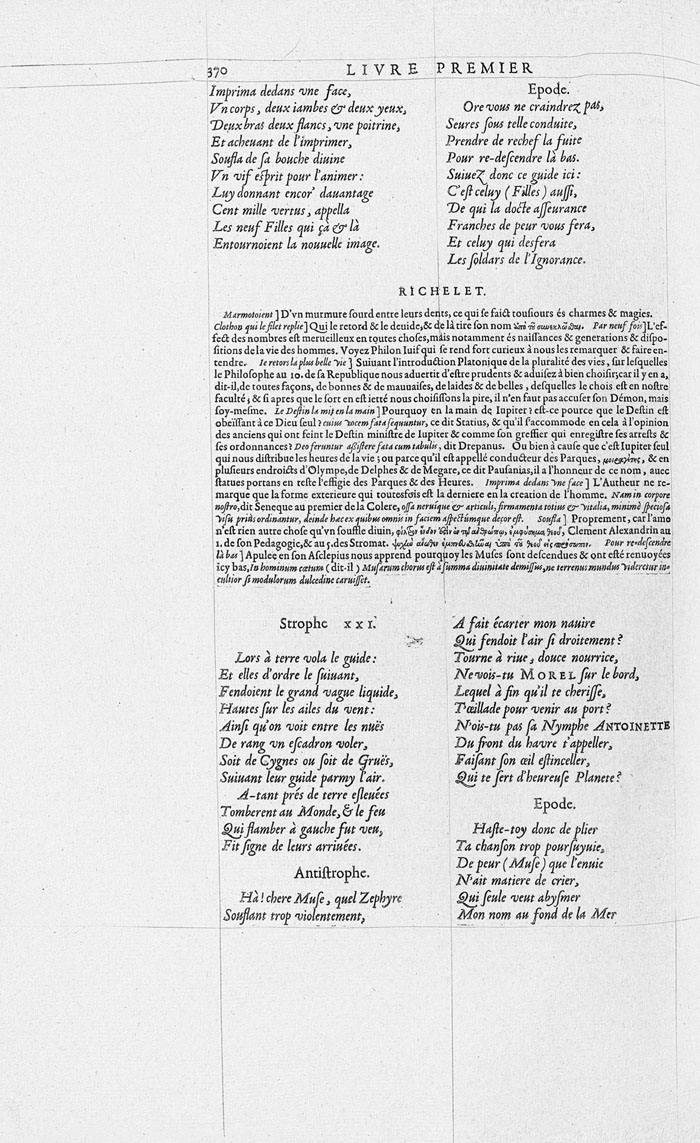 370
LIVRE PREMIER
Imprima dedans vne face,
Vn corps, deux iambes & deux yeux,
Deux bras deux flancs, vne poitrine,
Et acheuant de l'imprimer,
Soufla de sa bouche diuine
Vn vif esprit pour l'animer:
Luy donnant encor' dauantage
Cent mille vertus, appella
Les neuf Filles qui çà & là
Entournoient la nouuelle image.
Epode.
Ore vous ne craindrez pas,
Seures sous telle conduite,
Prendre de rechef la fuite
Pour re-descendre là bas.
Suiuez donc ce guide ici:
C'est celuy (Filles) aussi,
De qui la docte asseurance
Franches de peur vous fera,
Et celuy qui desfera
Les soldars de l'Ignorance.
RICHELET.
Marmotoient] D'vn murmure sourd entre leurs dents, ce qui se faict tousiours és charmes & magies.
Clothon qui le filet replie] Qui le retord & le deuide, & de là tire son nom Par neuf fois] L'ef-
fect des nombres est merueilleux en toutes choses, mais notamment és naissances & generations & dispo-
sitions de la vie des hommes. Voyez Philon Iuif qui se rend fort curieux à nous les remarquer & faire en-
tendre. Ie retors la plus belle vie] Suiuant l'introduction Platonique de la pluralité des vies, sur lesquelles
le Philosophe au 10. de sa Republique nous aduertit d'estre prudents & aduisez à bien choisir; car il y en a,
dit-il, de toutes façons, de bonnes & de mauuaises, de laides & de belles, desquelles le chois est en nostre
faculté; & si apres que le sort en est ietté nous choisissons la pire, il n'en faut pas accuser son Démon, mais
soy-mesme. Le Destin la mit en la main] Pourquoy en la main de Iupiter? est-ce pource que le Destin est
obeïssant à ce Dieu seul? cuius vocem fata sequuntur, ce dit Statius, & qu'il s'accommode en cela à l'opinion
des anciens qui ont feint le Destin ministre de Iupiter & comme son greffier qui enregistre ses arrests &
ses ordonnances? Deo feruntur assistere fata cum tabulis, dit Drepanus. Ou bien à cause que c'est Iupiter seul
qui nous distribue les heures de la vie; ou parce qu'il est appellé conducteur des Parques, μοιραγέτης, & en
plusieurs endroicts d'Olympe, de Delphes & de Megare, ce dit Pausanias, il a l'honneur de ce nom, auec
statues portans en teste l'effigie des Parques & des Heures. Imprima dedans vne face] L'Autheur ne re-
marque que la forme exterieure qui toutesfois est la derniere en la creation de l'homme. Nam in corpore
nostro, dit Seneque au premier de la Colere, ossa neruique & articuli, firmamenta totius & vitalia, minimè speciosa
visu priùs ordinantur, deinde hæc ex quibus omnis in faciem aspectúmque decor est. Soufla] Proprement, car l'ame
n'est rien autre chose qu'vn souffle diuin, Clement Alexandrin au
1. de son Pedagogic, & au 5. des Stromat. Pour re-descendre
là bas] Apulee en son Asclepius nous apprend pourquoy les Muses sont descendues & ont esté renuoyées
icy bas, In hominum cœtum (dit-il) Musarum chorus est à summa diuinitate demissus, ne terrenus mundus videretur in-
cultior si modulorum dulcedine caruisset.
Strophe XXI.
Lors à terre vola le guide:
Et elles d'ordre le suiuant,
Fendoient le grand vague liquide,
Hautes sur les ailes du vent:
Ainsi qu'on voit entre les nuës
De rang vn escadron voler,
Soit de Cygnes ou soit de Gruës,
Suiuant leur guide parmy l'air.
A-tant prés de terre esleuées
Tomberent au Monde, & le feu
Qui flamber à gauche fut veu,
Fit signe de leurs arriuées.
Antistrophe.
Hà! chere Muse, quel Zephyre
Souflant trop violentement,
A fait écarter mon nauire
Qui fendoit l'air si droitement?
Tourne à riue, douce nourrice,
Ne vois-tu MOREL sur le bord,
Lequel à fin qu'il te cherisse,
T'œillade pour venir au port?
N'ois-tu pas sa Nymphe ANTOINETTE
Du front du havre t'appeller,
Faisant son œil estinceller,
Qui te sert d'heureuse Planete?
Epode.
Haste-toy donc de plier
Ta chanson trop poursuyuie,
De peur (Muse) que l'enuie
N'ait matiere de crier,
Qui seule veut abysmer
Mon nom au fond de la Mer